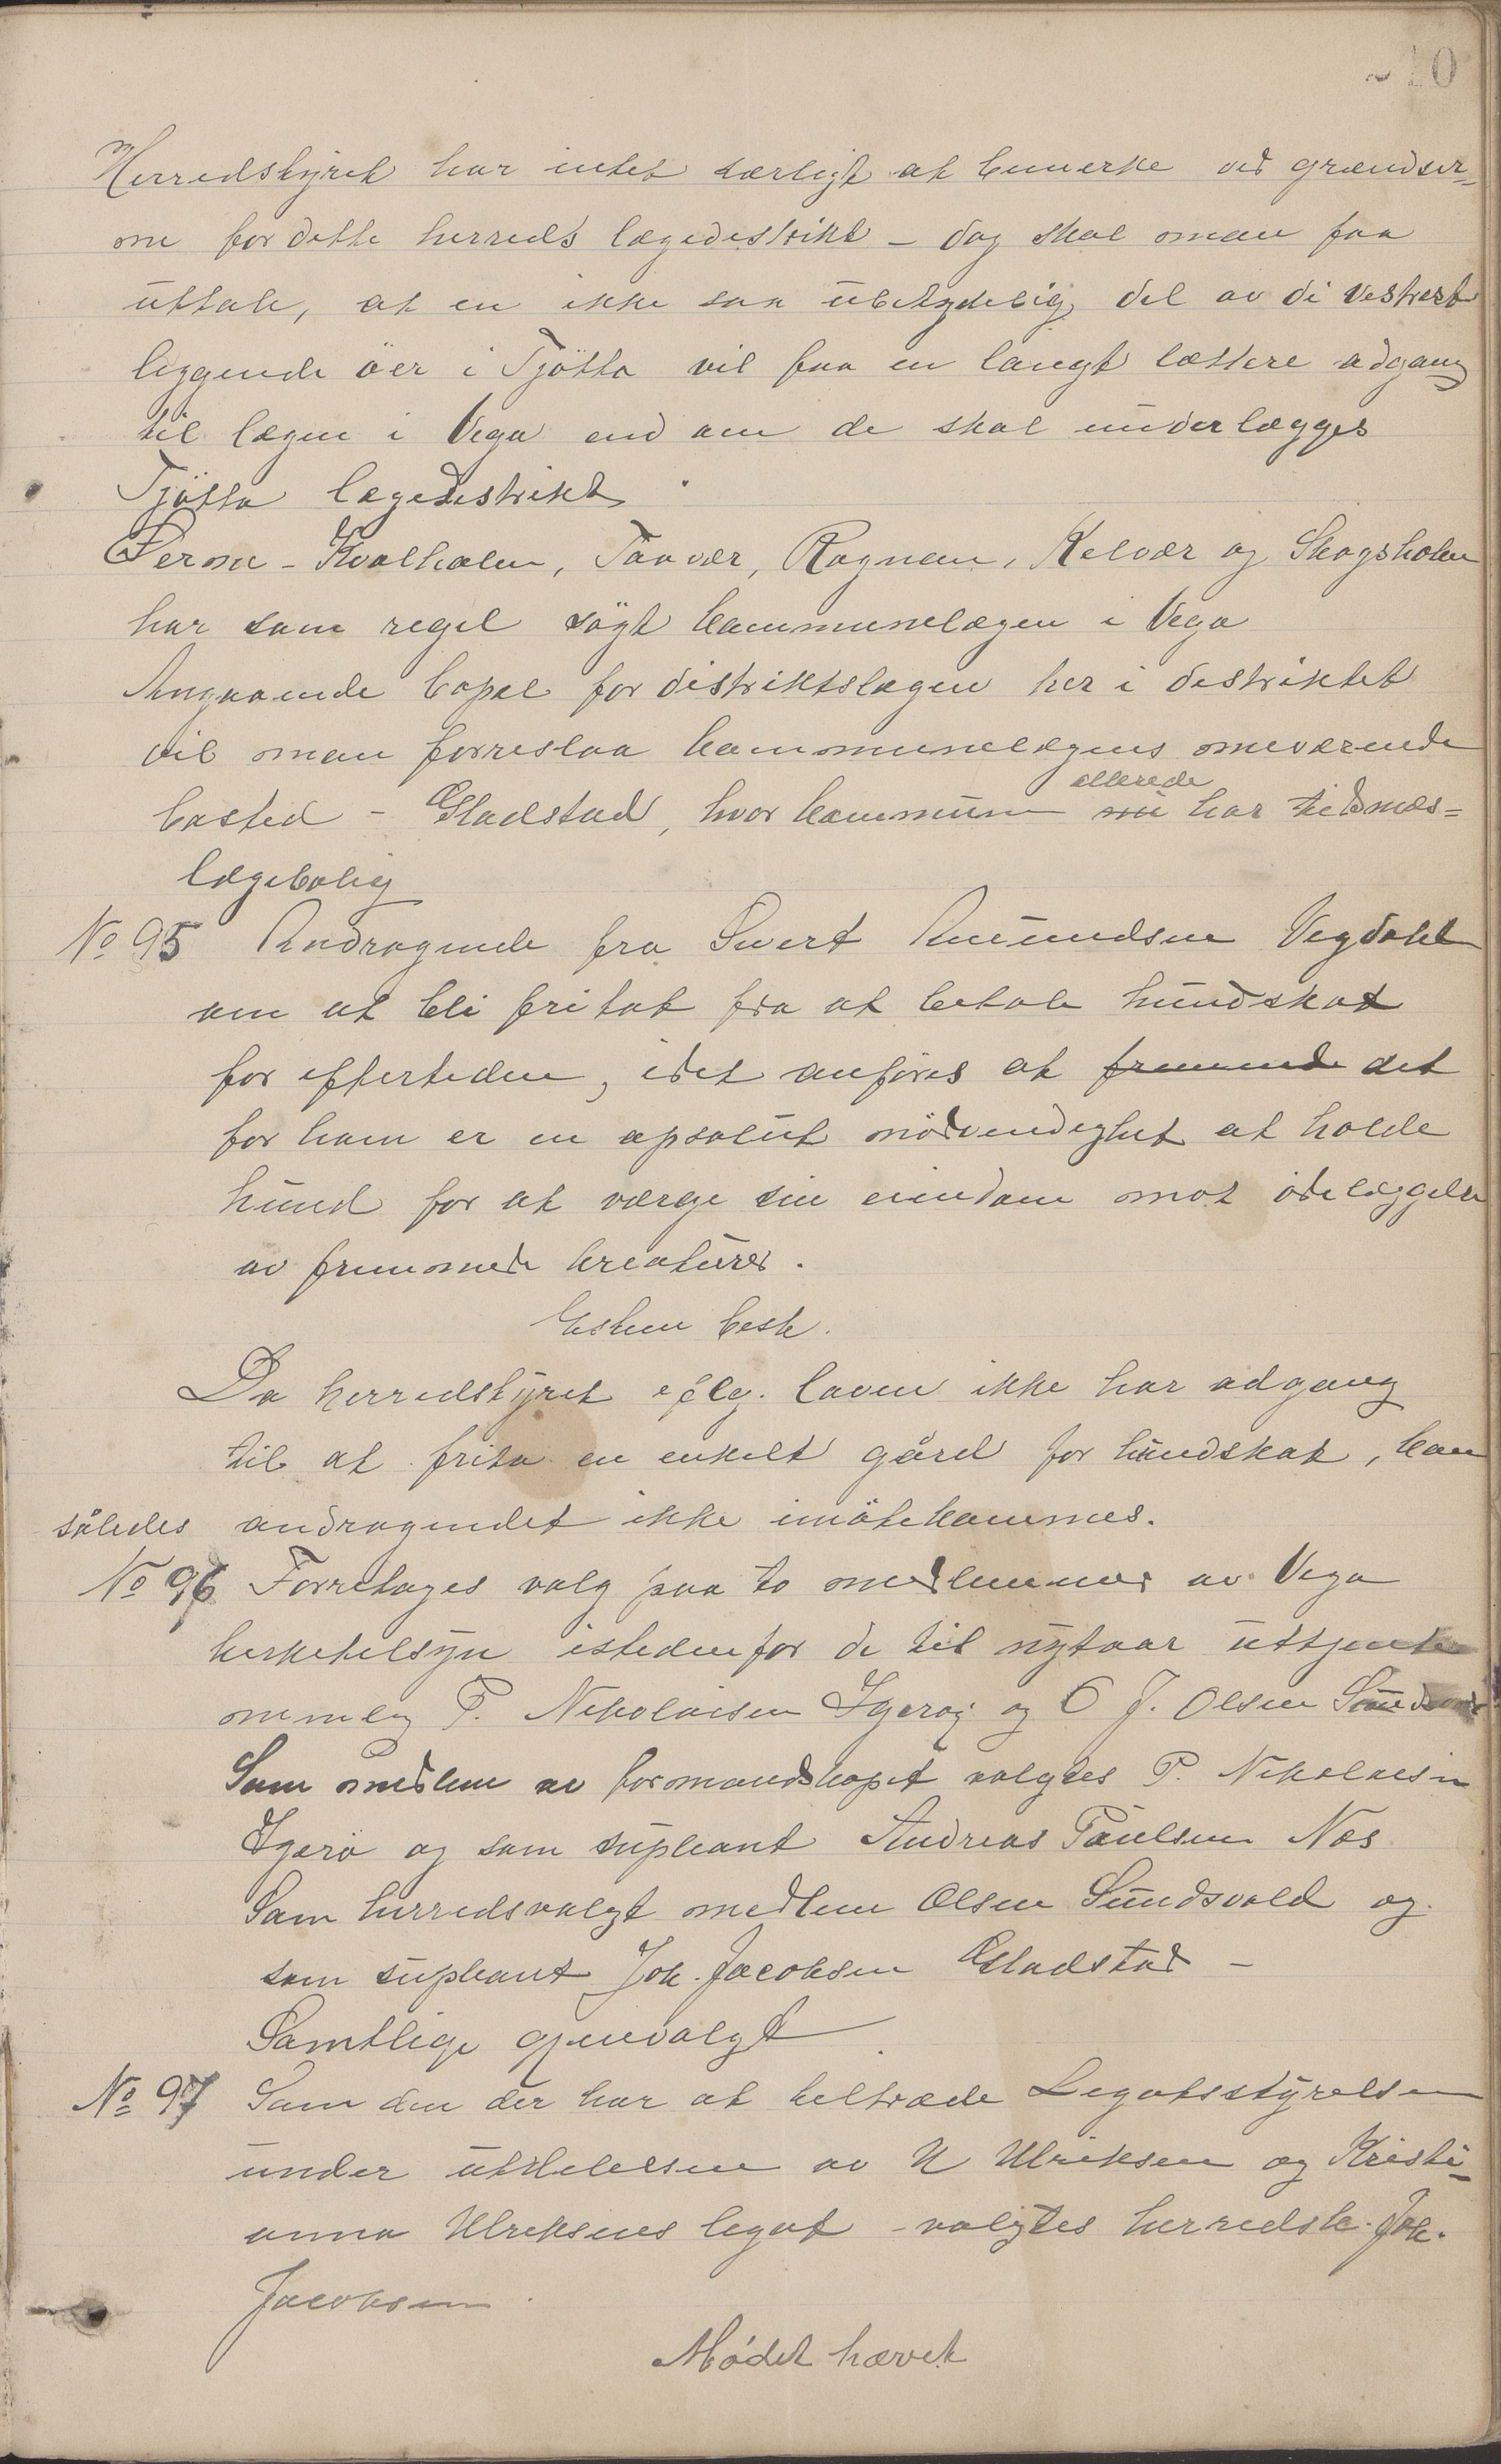 10
Herredstyret har intet særligt at bemerke ved grændser=
ne for dette herreds lægedestrikt – dog skal man faa
uttale, at en ikke saa ubetydelig del av de vestvest
liggende öer i Tjötta vil faa en langt lættere adgang
til lægen i Vega end om de skal underlægges
Tjötta lægedestrikt.
Derne – Kvalholm, Taavær, Rognan, Kelvær og Skogsholm
har som regel søgt kommunelægen i Vega
Angaaende bopæl for distriktslægen her i destriktet
vil man forreslaa kommunelægens nuværende
allerede
bosted – Gladstad, hvor kommunen nu har tidsmæs=
lægebolig
No 95 Andragende fra Sivert Amundsen Vegdahl
om at bli fritat fra at betale hundskat
for eftertiden, idet anføres at fremmede det
for ham er en apsolut nødvendighet at holde
hund for at værge sin eiendom mot ödelæggelse
av fremmede kreaturer.
Enstem besl.
Da herredstyret eflg. loven ikke har adgang
til at frita en enkelt gård for hundskat, kan
således andragendet ikke imötekommes.
No 96 Forretages valg paa to medlemmer av Vega
kirketilsyn istedenfor de til nytaar uttjente
nemlig P. Nikolaisen Igerøy og O J. Olsen Sundsvold
Som medlem av formandskapet valgtes P. Nikolaisen
Igerö og som supleant Andreas Paulsen Nes
Som herredsvalgt medlem Olsen Sundsvold og
som supleant Joh. Jacobsen Gladstad –
Samtlige gjenvalgt
No 97 Som den der har at tiltræde Legatsstyrelsen
under utdelelsen av U Ulriksen og Kristi=
anna Ulriksens legat – valgtes herredsk. Joh.
Jacobsen.
Mødet hævet